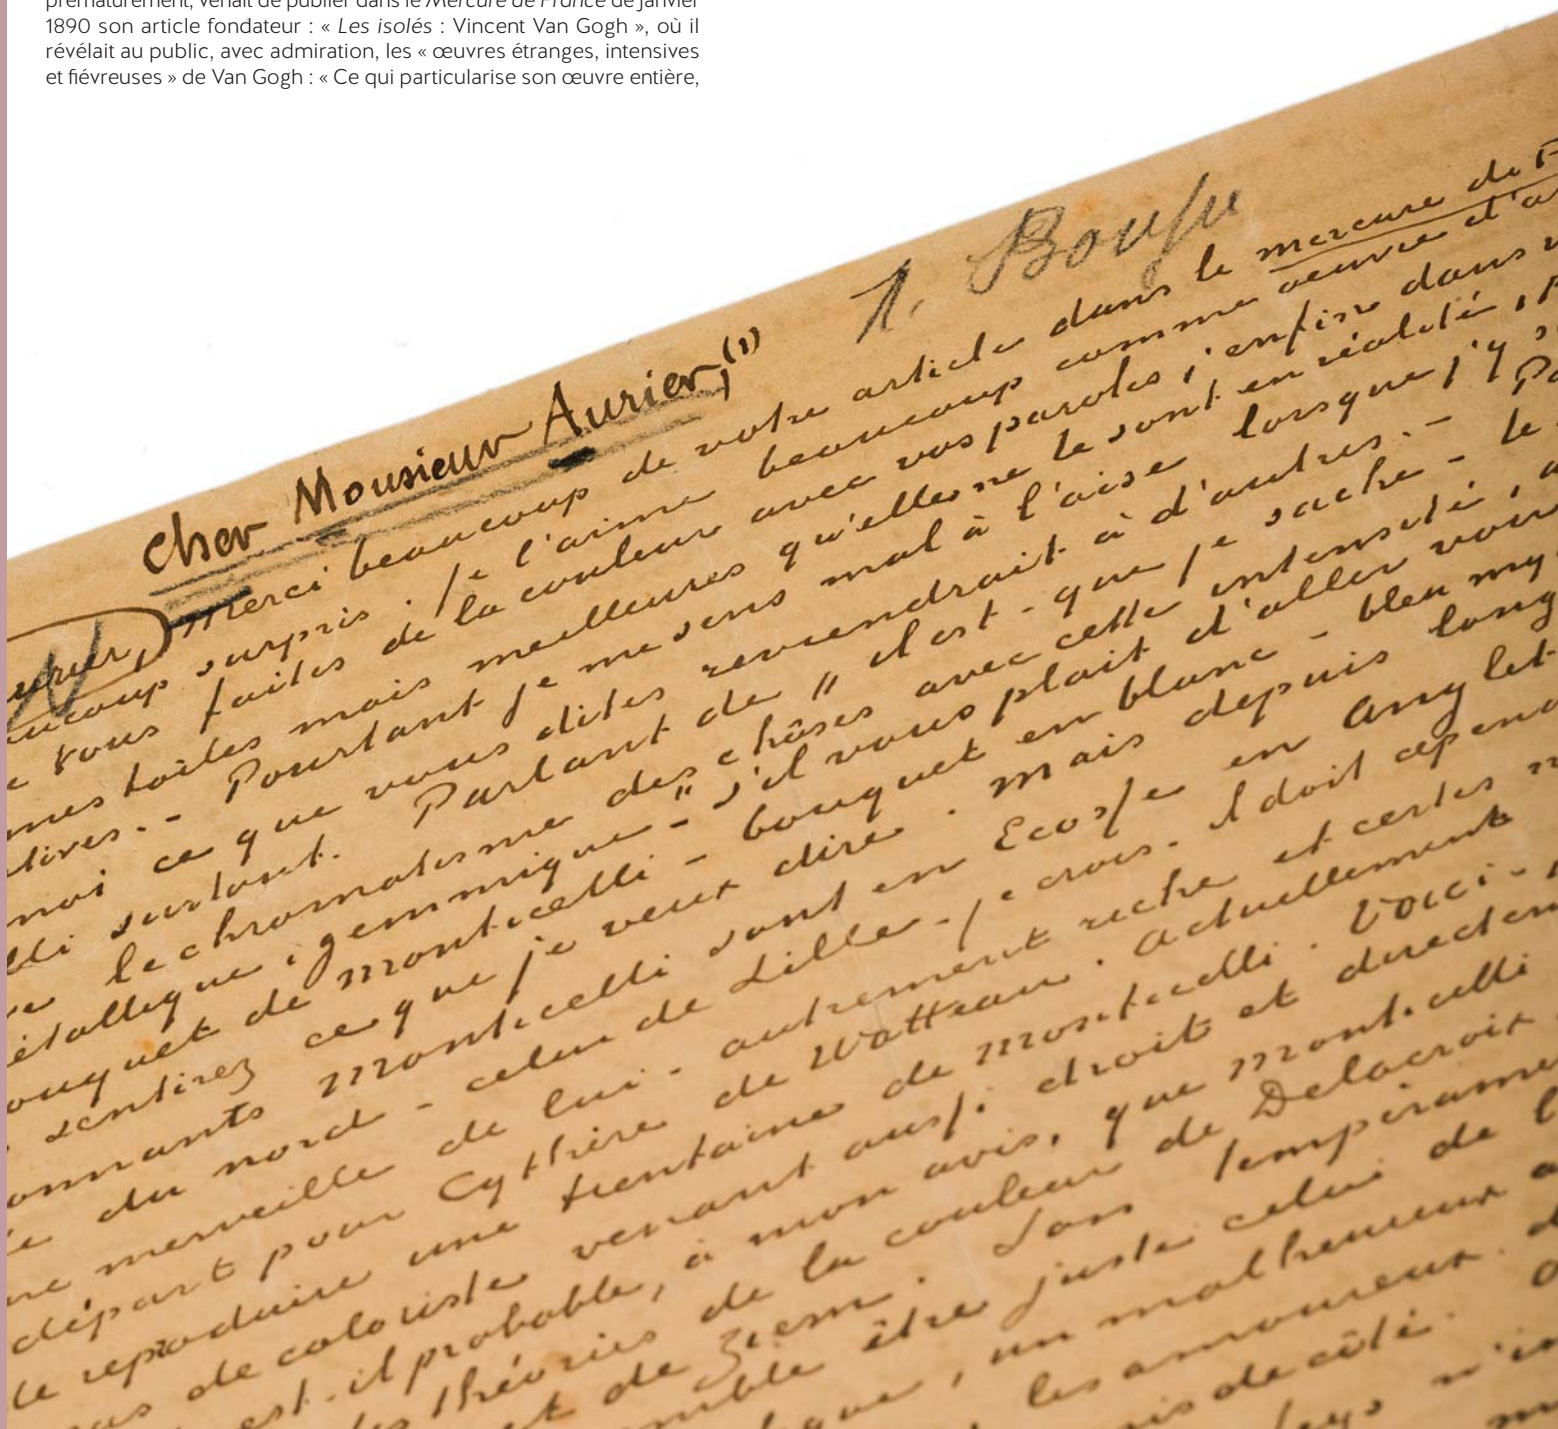 prématurément, venait de publier dans le Mercure de France de janvier
1890 son article fondateur : « Les isolés : Vincent Van Gogh », où il
révélait au public, avec admiration, les « œuvres étranges, intensives
et fiévreuses » de Van Gogh : « Ce qui particularise son œuvre entière,
1.
Cher Monsieur Aurier, (1)
Merci beaucoup de votre article dans le mercure de F
surpris. je l'aime beaucoup comme oeuvre d'a
vous faites de la couleur avec vos paroles ; enfin dans
mes toiles mais meilleures qu'elles ne le sont en réalité,
Pourtant je me sens mal à l'aise lorsque j'y
moi ce que vous dites reviendrait à d'autres. -
surtout. Partant de " il est - que je sache - le
le chromatisme des chôses avec cette intensité,
gemmique " - s'il vous plait d'aller voir
bouquet de monticelli - bouquet en blanc - bleu my
sentirez ce que je veux dire. mais depuis long
monticelli sont en Ecosse en Anglet
du nord - celui de Lille - je crois. doit
merveille de lui - autrement riche et certes
départ pour Cythère de Watteau. Actuellement
reproduire une trentaine de monticelli. Voici -
de coloriste venant aussi droit et directem
est-il probable, à mon avis, que monticelli
théories de la couleur de Delacroix
et de Ziem. Son tempérame
être juste celui de
un malheureux
les amoureux.
de côté.